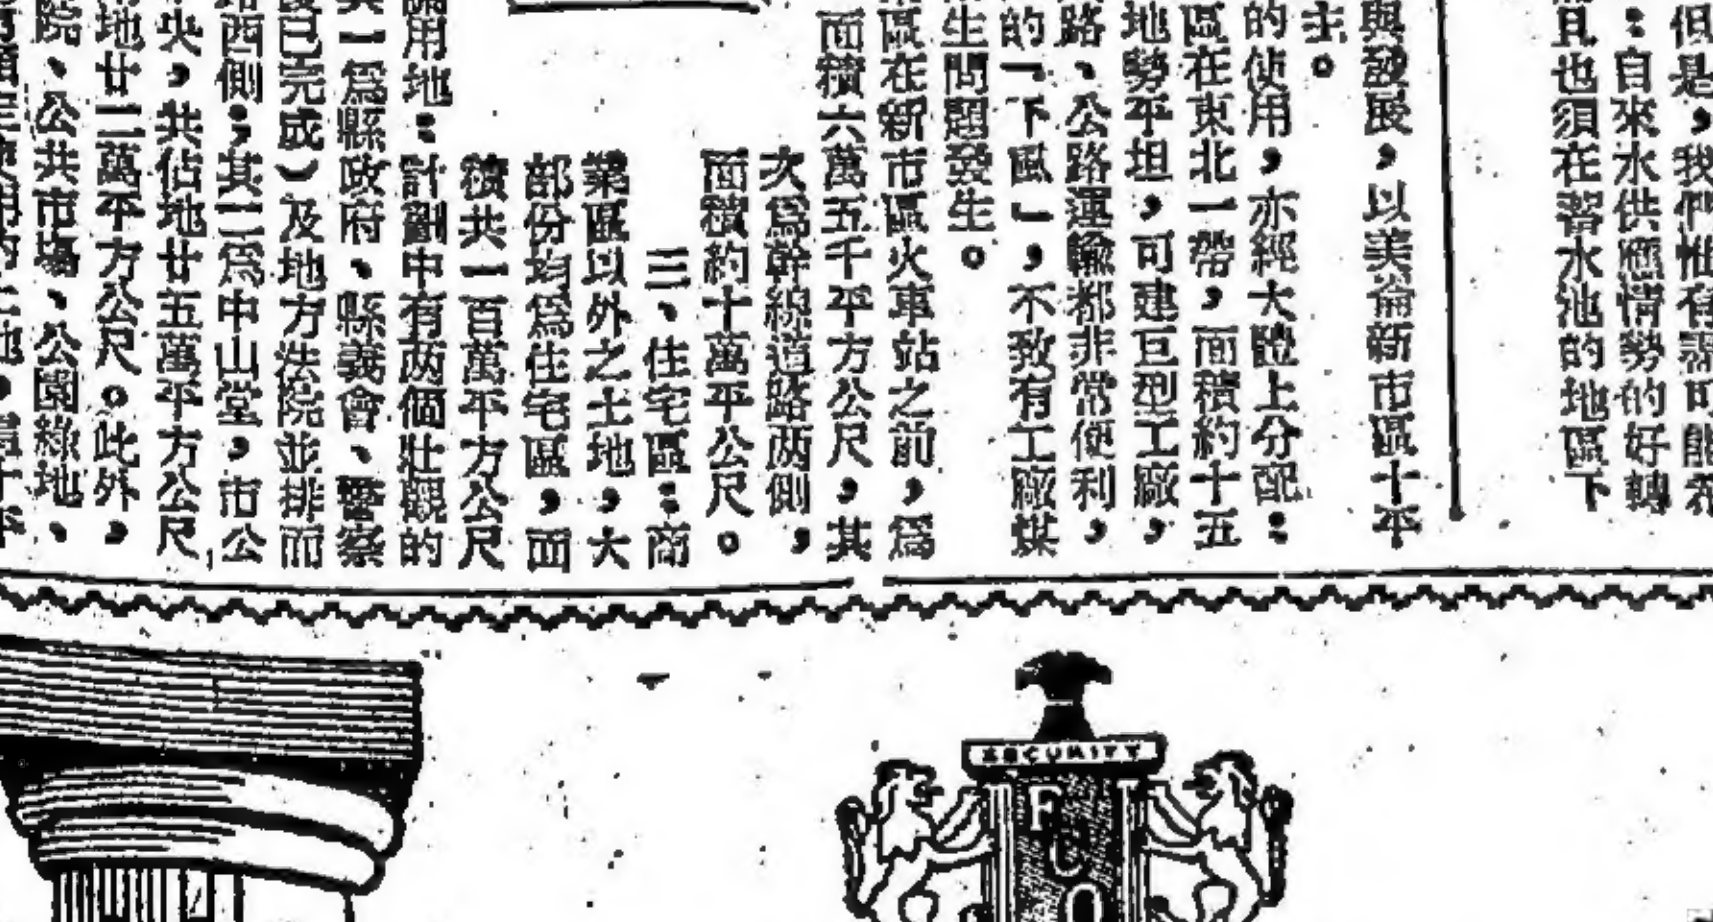 但是，我們惟有
：自來水供應情勢的好轉
且也須在蓄水池的地區下
與發展，以美崙新市區十平
主。
的使用，亦經大體上分配：
區在東北一帶，面積約十五
地勢平坦，可建巨型工廠，
路、公路運輸都非常便利，
的「下風」，不致有工廠煤
生問題發生。
區在新市區火車站之前，爲
面積六萬五千平方公尺，其
次爲幹線道路两側，
面積約十萬平公尺。
三、住宅區：商
業區以外之土地，大
部份均爲住宅區，面
積共一百萬平方公尺
用地：計劃中有两個壯觀的
一爲縣政府、縣義會、警察
已完成）及地方法院並排而
西側；其二爲中山堂，市公
央，共佔地廿五萬平方公尺
地廿二萬平方公尺。此外，
院、公共市場、公園綠地、
SECURITY
F
U
O